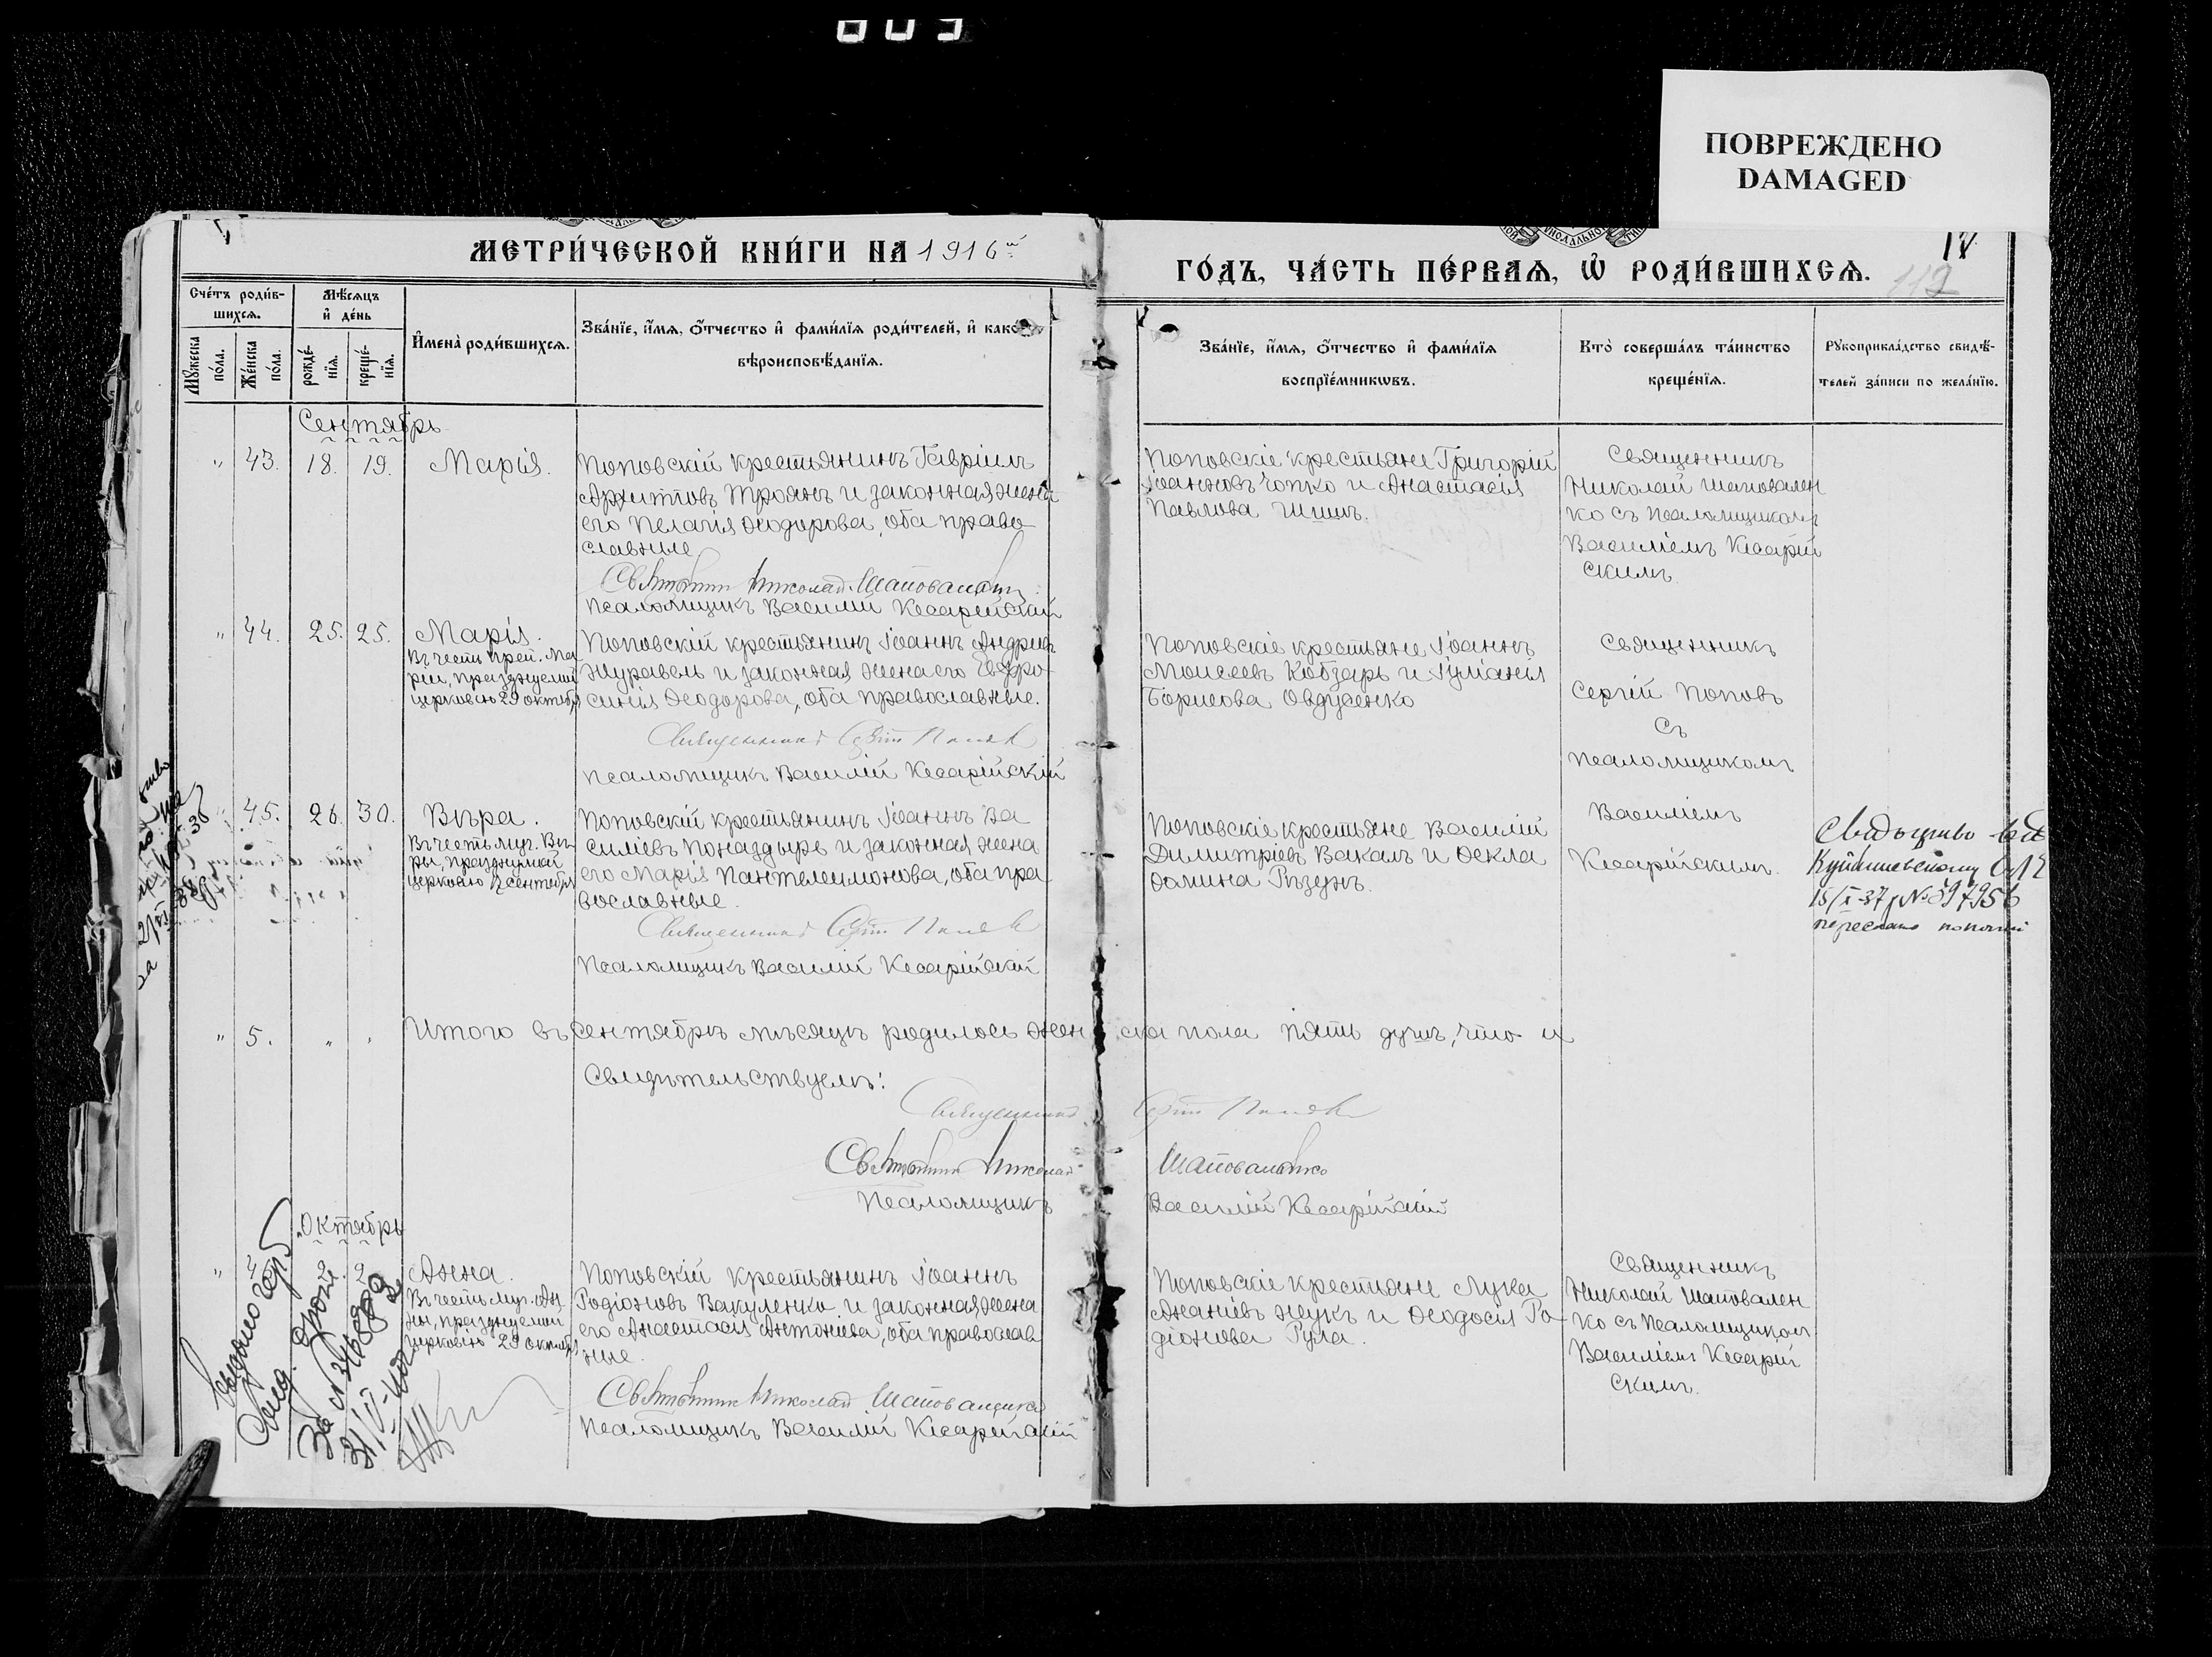 ПОВРЕЖДЕНО
DAMAGED
МЕТРИ́ЧЕСКОЙ КНИ́ГИ НА 1916й
ГО́ДЪ, ЧА́СТЬ ПЕ́РВАѦ, Ѡ҆ РОДИ́ВШИХСѦ.
112
Сче́тъ роди́в-
шихсѧ.
Мѣ́сѧцъ
и҆ де́нь
И҆мена̀ роди́вшихсѧ.
Зва́нїе, и҆́мѧ, ѻ҆́тчество и҆ фами́лїѧ роди́телей, и҆ како́й
вѣроисповѣ́данїѧ.
Мꙋ́жеска
по́ла.
Же́нска
по́ла.
рожде́-
нїѧ.
креще́-
нїѧ.
Зва́нїе, и҆́мѧ, ѻ҆́тчество и҆ фами́лїѧ
воспрїе́мникѡвъ.
Кто̀ соверша́лъ та́инство
креще́нїѧ.
Рꙋкоприкла́дство свидѣ́-
телей за́писи по жела́нїю.
Сентябрь
" 43. 18. 19. Марія.
Поповскій крестьянинъ Гавріилъ
Архиповъ Троянъ и законная жена
его Пелагія Ѳеодорова, оба право
славные
Священникъ Николай Шаповаленко
Псаломщикъ Василій Кесарійскій
Поповскіе крестьяне Григорій
Іоанновъ Чопко и Анастасія
Павлова Шишъ.
Священникъ
Николай Шаповален
ко съ псаломщикомъ
Василіемъ Кесарій
скимъ
" 44. 25. 25. Марія.
Въ честь преп. Ма
ріи, празднуемой
церковію 29 октября
Поповскій крестьянинъ Іоаннъ Андреевъ
Журавель и законная жена его Евфро
синія Ѳеодорова, оба православные.
Священникъ Сергій Поповъ
Псаломщикъ Василій Кесарійскій
Поповскіе крестьяне Іоаннъ
Моисеевъ Кобзарь и Іуліанія
Борисова Овдуенко
Священникъ
Сергій Поповъ
съ
псаломщикомъ
" 45. 26. 30. Вѣра.
Въ честь муч. Вѣ
ры, празднуемой
церковію 17 сентября
Поповскій крестьянинъ Іоаннъ Ва
силіевъ Поназдырь и законная жена
его Марія Пантелеимонова, оба пра
вославные.
Священникъ Сергій Поповъ
Псаломщикъ Василій Кесарійскій
Поповскіе крестьяне Василій
Димитріевъ Вакалъ и Ѳекла
Домина Рѣзунъ.
Василіемъ
Кесарійскимъ.
15/I-37
" 5. " " Итого въ сентябрѣ мѣсяцѣ родилось женска пола пять душъ, что и
Свидѣтельствуемъ:
Священникъ Сергій Поповъ
Священникъ Николай Шаповаленко
Псаломщикъ Василій Кесарійскій
Октябрь
" 2. 2. Анна.
Въ честь муч. Ан
ны, празднуемой
церковію 29 октября
Поповскій крестьянинъ Іоаннъ
Родіоновъ Вакуленко и законная жена
его Анастасія Антоніева, оба православ
ные.
Священникъ Николай Шаповаленко
Псаломщикъ Василій Кесарійскій
Поповскіе крестьяне Лука
Ананіевъ Жукъ и Ѳеодосія Ро
діонова Рула.
Священникъ
Николай Шаповален
ко съ псаломщикомъ
Василіемъ Кесарій
скимъ.